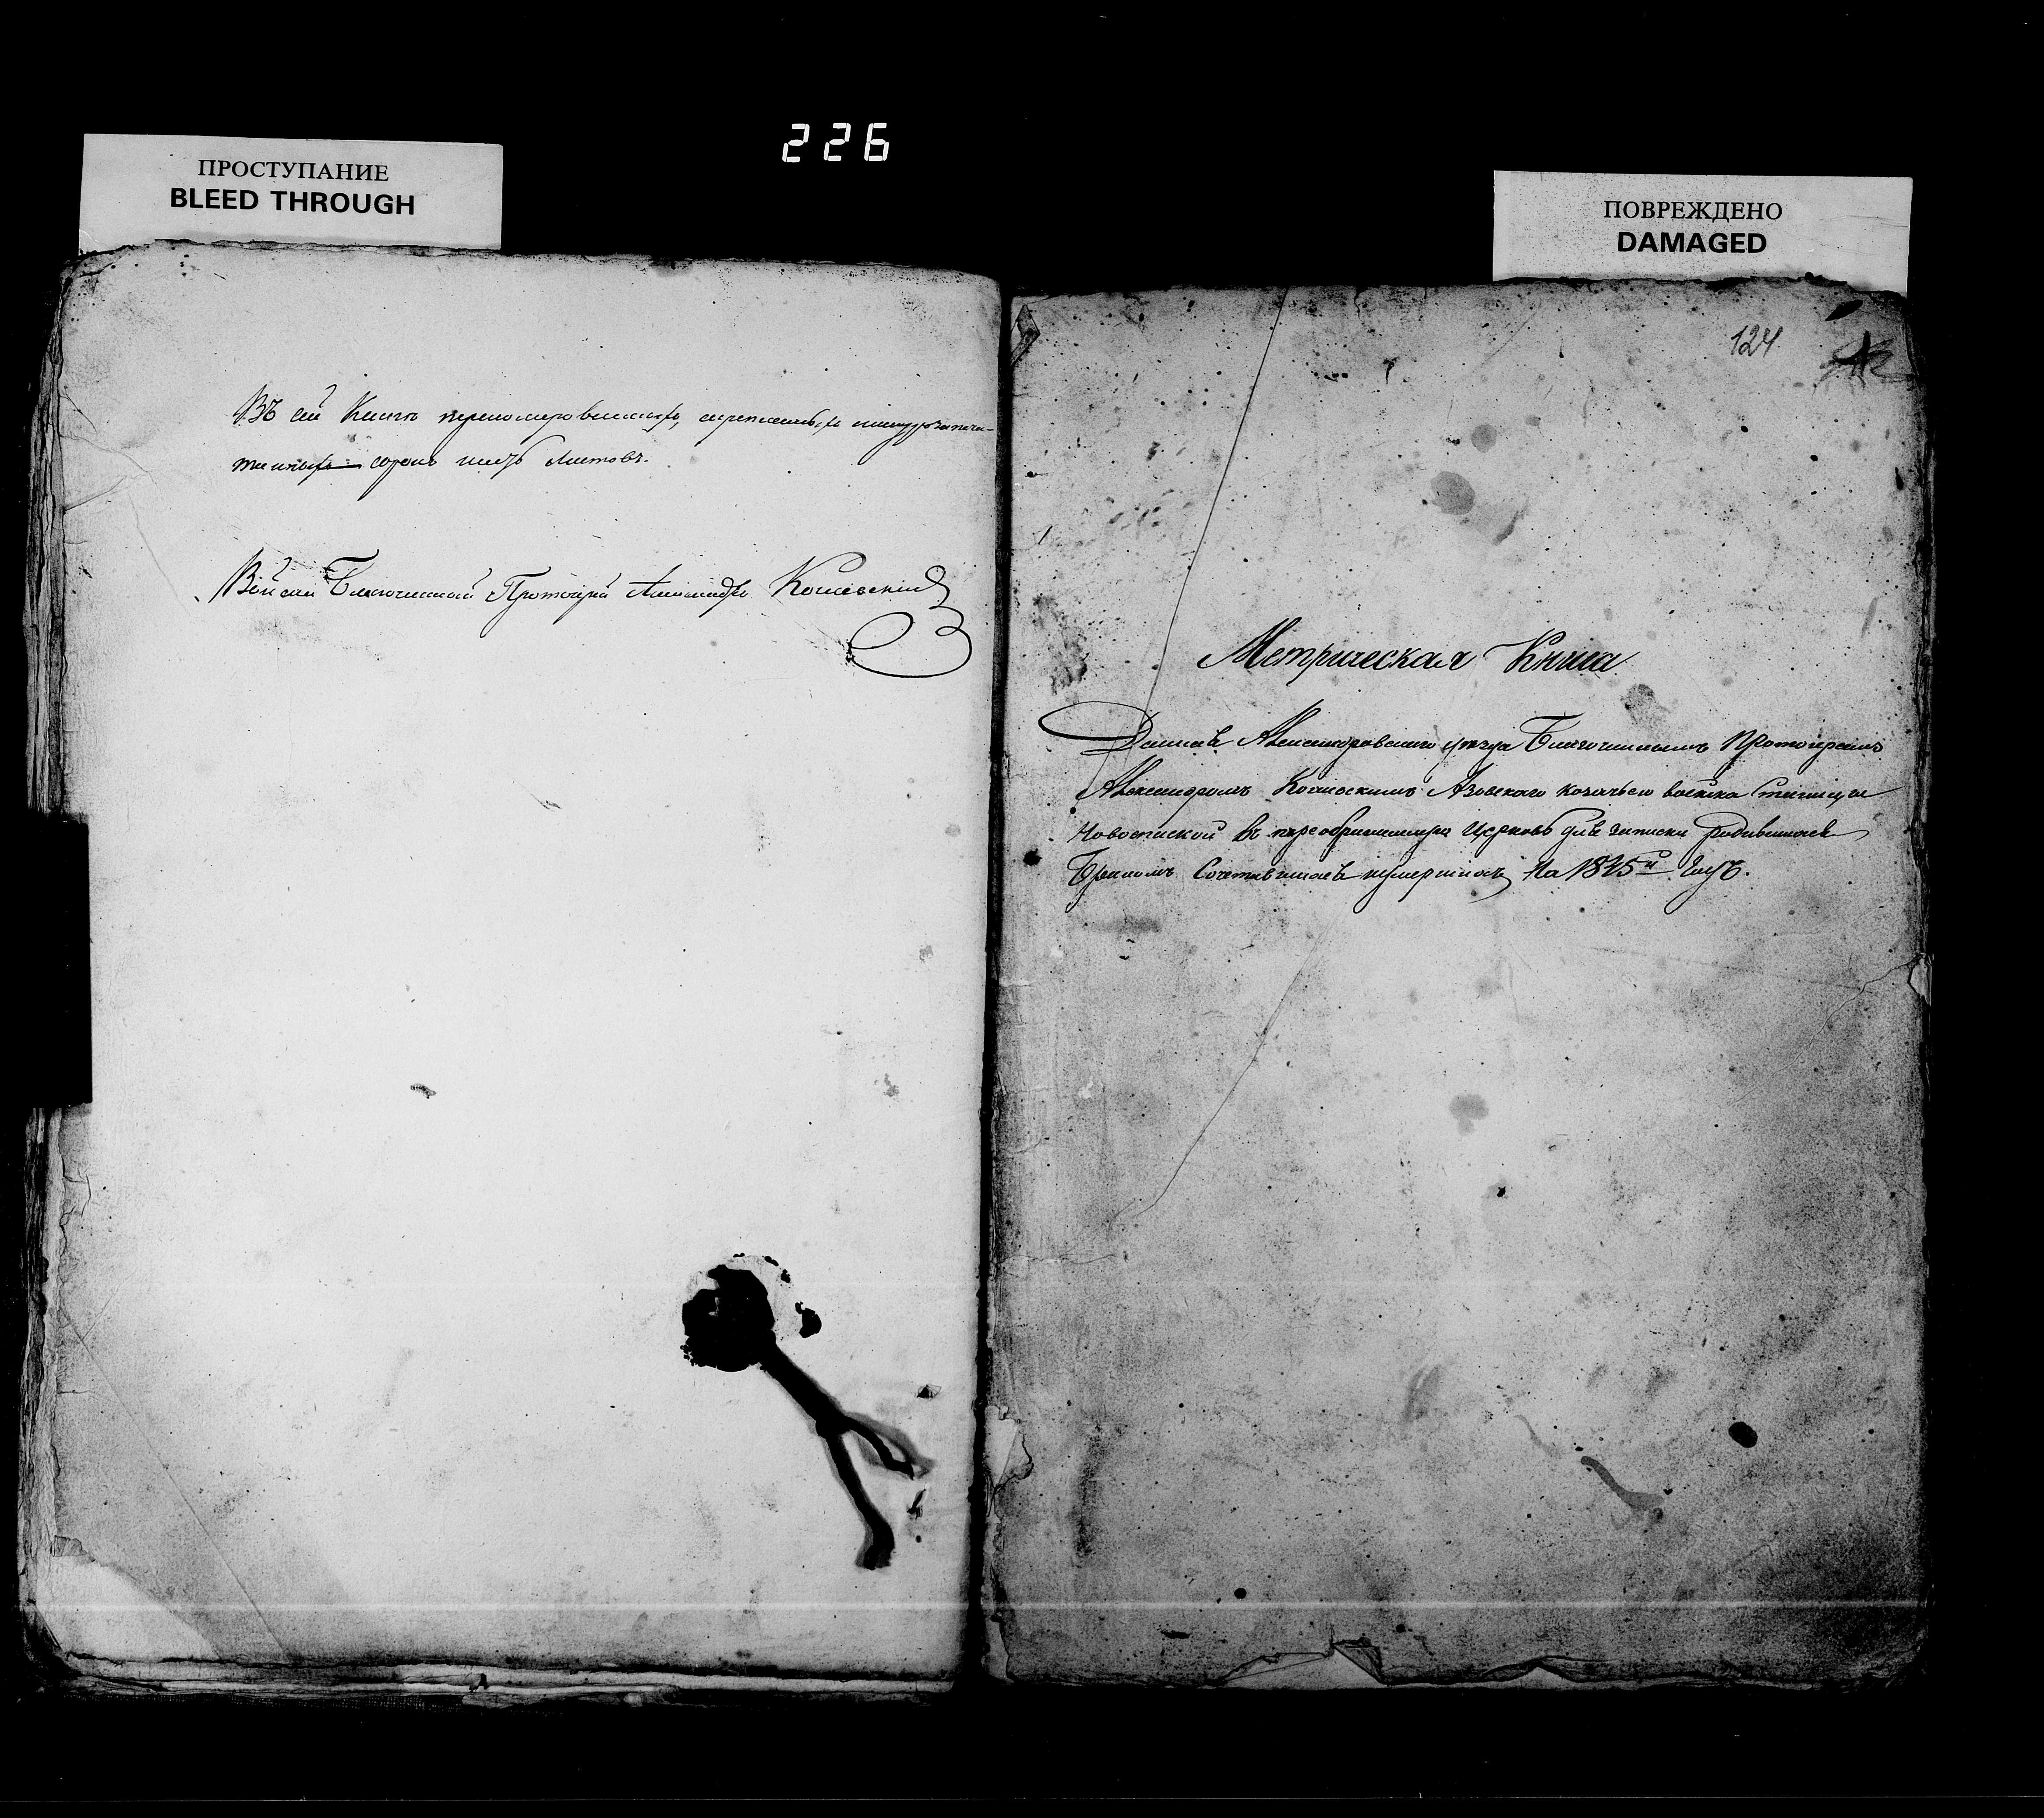 226
ПРОСТУПАНИЕ
BLEED THROUGH
Въ сей Книгѣ перномерованныхъ, скрепленныхъ и шнурозапеча-
танныхъ сорокъ шесть листовъ.
Благочинный Протоіерей Александръ Косиевский
ПОВРЕЖДЕНО
DAMAGED
124
Метрическая Книга
Данная Александровскаго уѣзда Благочиннымъ Протоіереемъ
Александромъ Косиевскимъ Азовскаго козачьего войска станицы
Новоспаской въ преображенскую Церковь для записки родившихся
Бракомъ Сочетавшихся и умершихъ На 1845й Годъ.